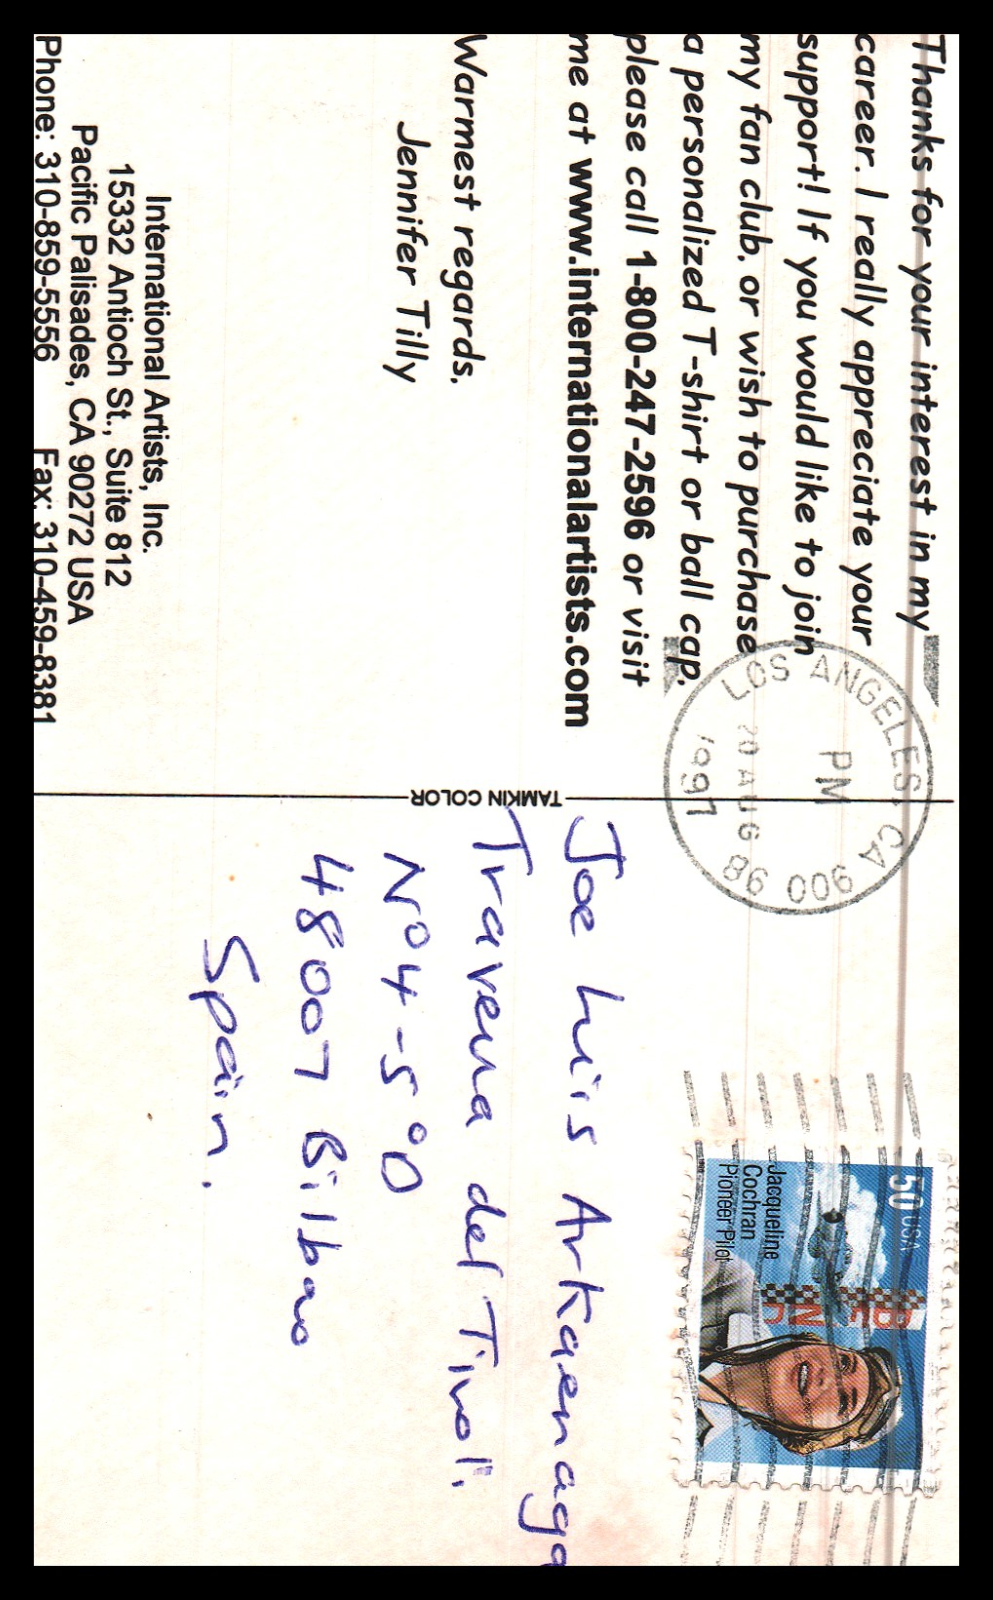 Thanks for your interest in my
career. I really appreciate your
support! If you would like to join
my fan club, or wish to purchase
a personalized T-shirt or ball cap,
please call 1-800-247-2596 or visit
me at www.internationalartists.com
Warmest regards,
Jennifer Tilly
International Artists, Inc.
15332 Antioch St., Suite 812
Pacific Palisades, CA 90272 USA
Phone: 310-859-5556 Fax: 310-459-8381
TAMKIN COLOR
LOS ANGELES, CA 900 98
PM
20 AUG
1997
50 USA
Jacqueline
Cochran
Pioneer Pilot
Joe Luis Arkaenaga
Travena del Tivoli
Nº 4-5ºD
48007 Bilbao
Spain.